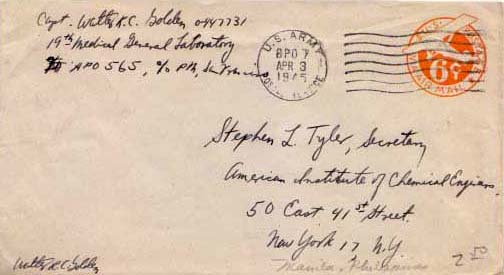 Capt. Walter R.C. Golden 0447731
19th Medical General Laboratory
APO 565, c/o PM, San Francisco
U.S. ARMY
APO 7
APR 3
1945
POSTAL SERVICE
6¢
VIA AIR MAIL
Stephen L Tyler, Secretary
American Institute of Chemical Engineers.
50 East 41st Street.
New York 17 N.Y
Manila, Philippines
2 50
Walter R C Golden